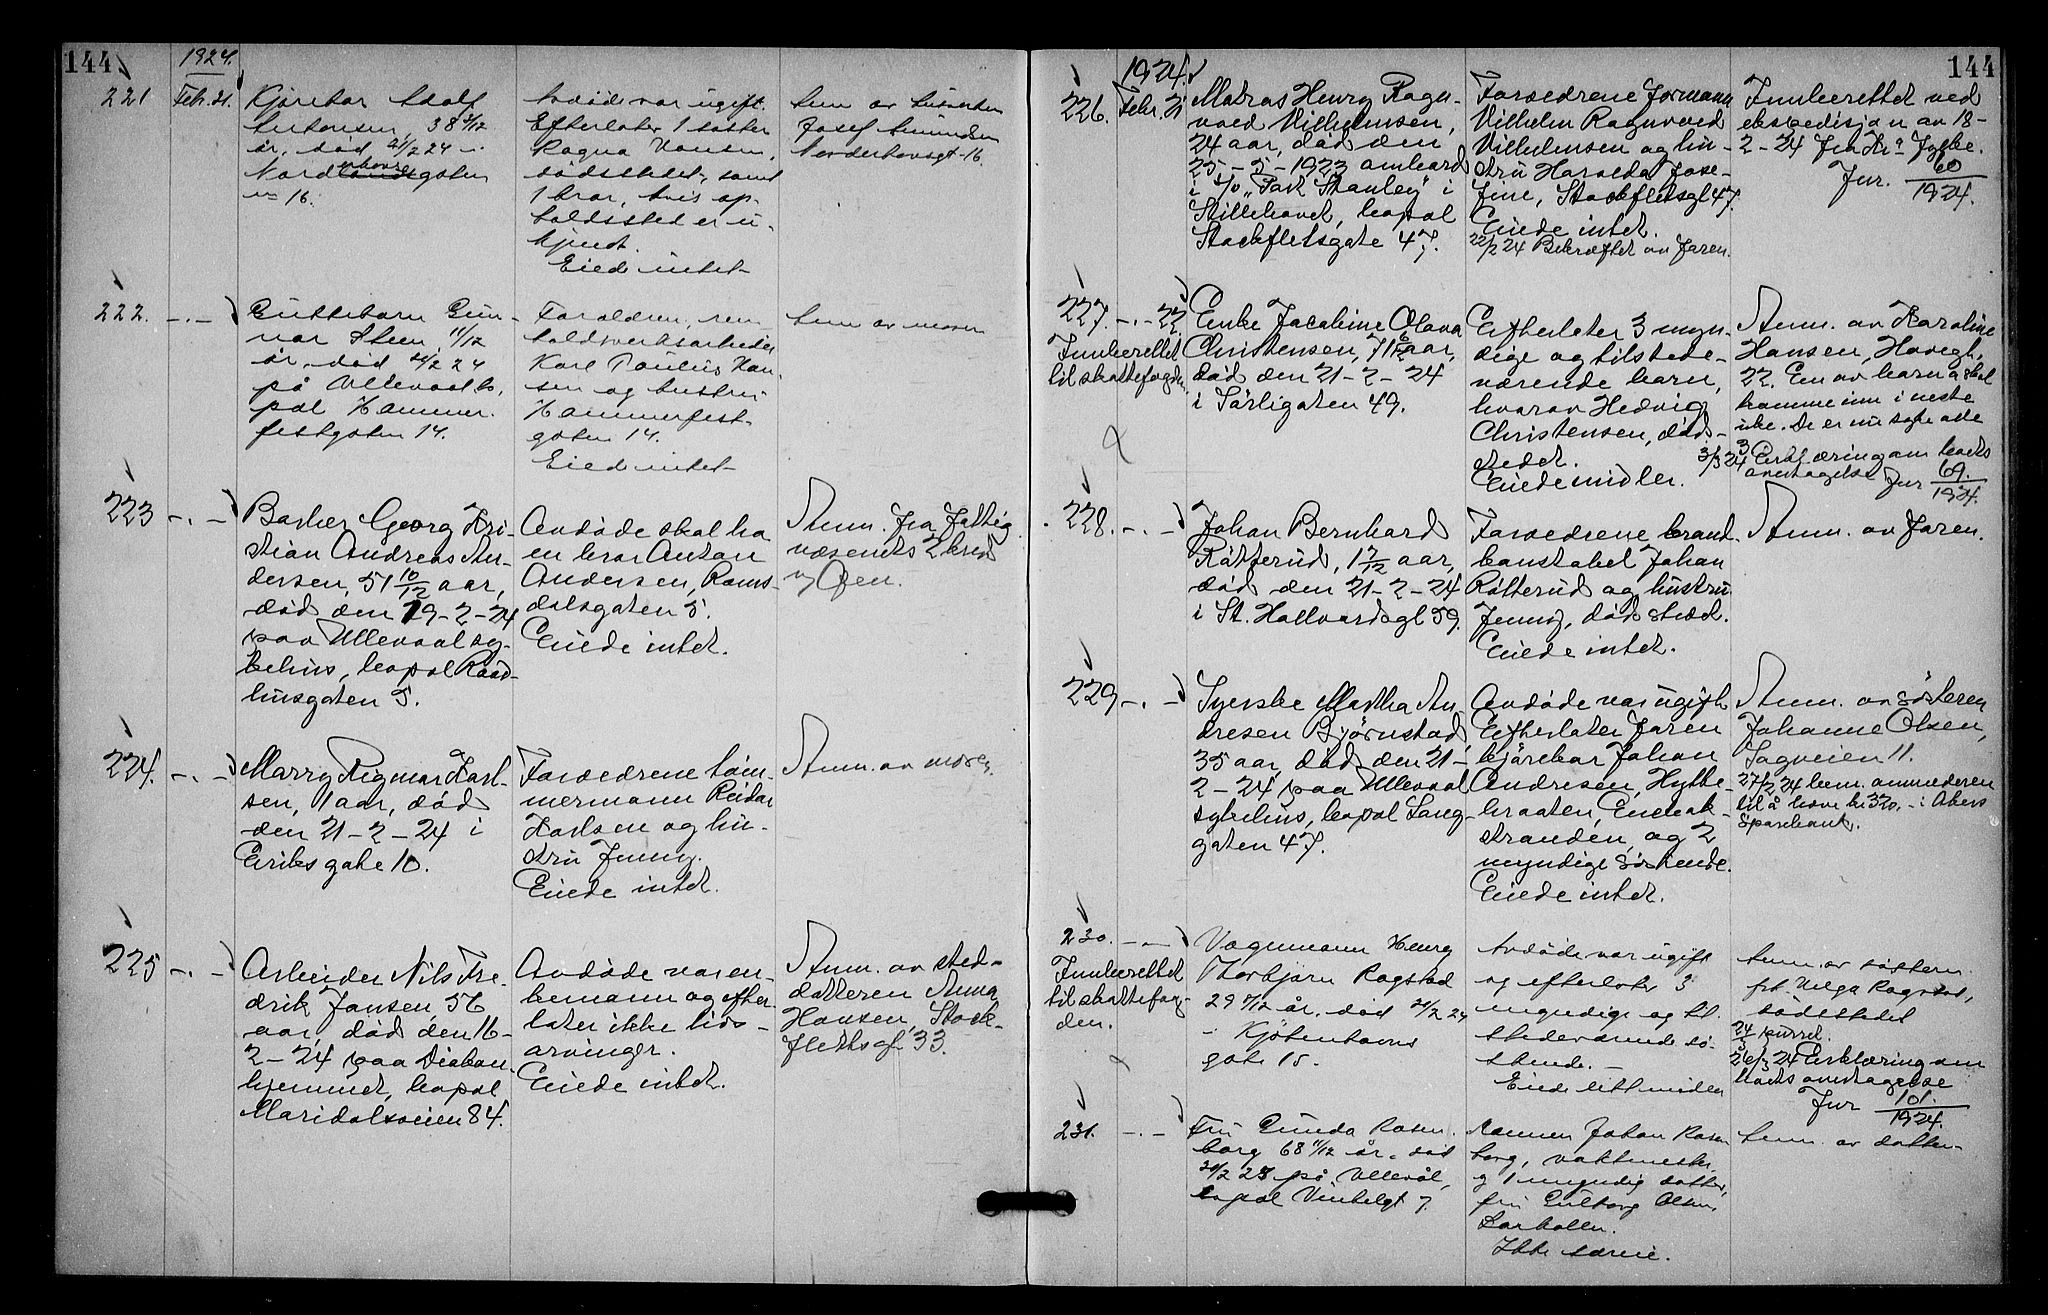 144
1924.
221
Febr. 21.
Kjørekar Adolf
Antonsen, 38 3/12
år, død 21/2 24 i
Nord
gaten
16.
Avdøde var ugift.
Efterlater 1 søster
Ragna Hansen,
dødsstedet, samt
1 bror, hvis op-
holdssted er u-
kjendt.
Eiede intet
Anm. av
Josef Amundsen
Nordahl
16.
222.
Guttebarn Gun-
nar Steen, 11/12
år, død 22/2 24
på Ullevaal s.
bopal Hammer-
festgaten 14.
Foreldrene, ren-
holdsverksarbeider
Karl Paulius Han-
sen og hustru
Hammerfest-
gaten 14.
Eiede intet
Anm. av moren
223
Barber Georg Kri-
stian Andreas An-
dersen, 51 10/12 aar,
død den 19-2-24
paa Ullevaal sy-
kehus, bopal Raad-
husgaten 5.
Avdøde skal ha
en bror Anton
Andersen, Roms-
dalsgaten 5.
Eiede intet.
Anm. fra Fattig
væsenets 2 kred
v/ Øen.
224.
Marry Rigmor Karl-
sen, 1 aar, død
den 21-2-24 i
Eiriks gate 10.
Forældrene tøm-
mermann Reidar
Karlsen og hu-
stru Jenny.
Eiede intet.
Anm. av moren.
225
Arbeider Nils Fre-
drik Jansen, 56
aar, død den 16-
2-24 paa Diakon-
hjemmet, bopal
Maridalsveien 84.
Avdøde var en-
kemann og efter-
later ikke livs-
arvinger.
Eiede intet.
Anm. av sted-
datteren Anna
Hansen, Stock-
fletsgt. 33.
144
1924.
226.
Febr. 21
Matros Henry Ragn-
vald Vilhelmsen,
24 aar, død den
25-5-1923 ombord
i S/S "Port Stanley" i
Stillehavet, bopal
Stockfletsgate 47.
Forældrene formann
Vilhelm Ragnvald
Vilhelmsen og hu-
stru Harolda Jose-
fine, Stockfletsgt 47.
Eiede intet.
22/2 24 Bekræftet av faren.
Innberettet ved
ekspedisjon av 18-
2-24 fra Kr.a Fylke.
Jnr. 60
1924.
227.
22.
Innberettet
til skattefogden
Enke Jacobine Olava
Christensen, 71
aar,
død den 21-2-24
i Sörligaten 49.
Efterlater 3 myn-
dige og tilstede-
værende barn,
hvorav Hedvig
Christensen, døds-
stedet.
Eiede midler.
Anm. av Karoline
Hansen, Havegt.
22. En av barna skal
komme inn i neste
uke. De er nu syke alle
3
3/3 24 Erklæring om boets
overtagelse
Jnr 69.
1924.
228.
Johan Bernhard
Råtterud, 1 7/12 aar,
død den 21-2-24
i St. Hallvardsgt 59.
Forældrene brand-
konstabel Johan
Råtterud og hustru
Jenny, dødsstedet.
Eiede intet.
Anm. av faren.
229
Syerske Martha An-
dresen Bjørnstad,
35 aar, død den 21-
2-24 paa Ullevaal
sykehus, bopal Lang-
gaten 47.
Avdøde var ugift
Efterlater faren
kjørekar Johan
Andresen, Hytte-
braaten, Enebak-
stranden, og 2
myndige søskende.
Eiede intet.
Anm. av søsteren
Johanne Olsen,
Sagveien 11.
27/2 24 bem. anmelderen
til å hæve kr 320,- i Akers
Sparebank.
230.
Innberettet
til skattefog-
den.
Vognmann Henry
Thorbjørn Rogstad
29 7/12 år, død 21/2 24
i Kjøbenhavns
gate 15.
Avdøde var ugift
og efterlater 3
myndige og til-
stedeværende sø-
skende.
Eiede litt midler
Anm. av søsteren
frk. Helga Rogstad,
dødsstedet
26/3 24 Erklæring om
boets overtagelse
Jnr 101.
1924.
231.
Fru Gunda Rosen-
borg 68 11/12 år, død
20/2 24 på Ullevål,
bopal Vinkelgt 7.
Mannen Johan Rosen
borg, vaktmester
og 1 myndig datter,
fru
Olsen,
Ikke særeie.
Anm. av datter